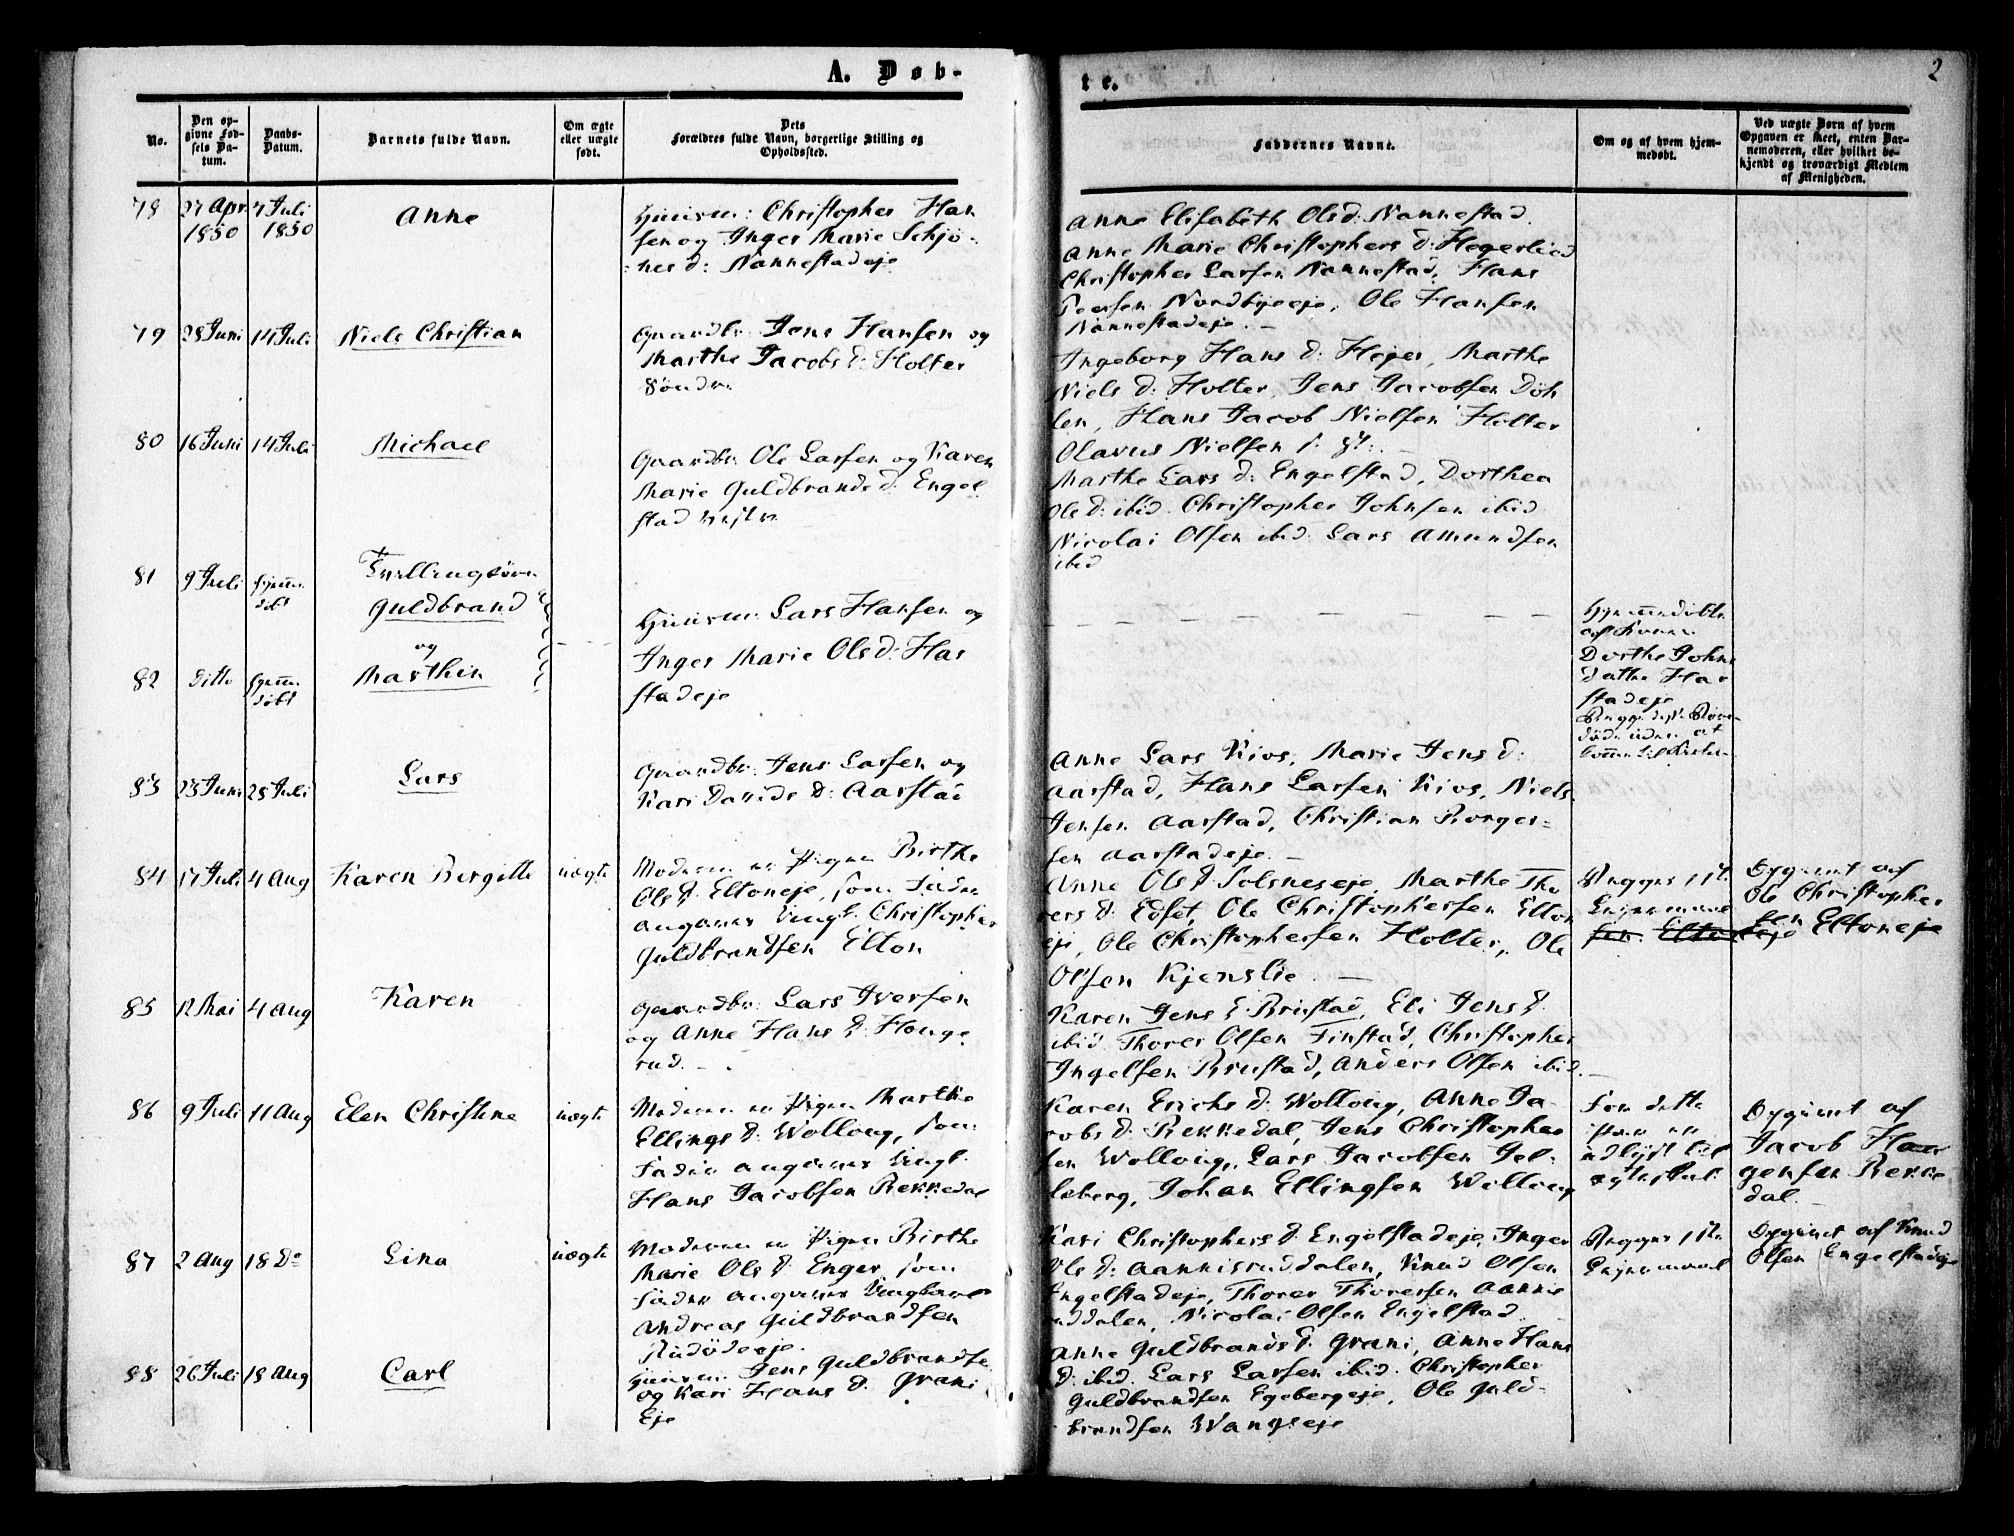 A. Døb-
te.
2
No.
Den op-
givne Fød-
sels Da-
tum.
Daabs-
Datum.
Barnets fulde Navn.
Om ægte
eller uægte
født.
Dets
Forældres fulde Navn, borgerlige Stilling og
Opholdssted.
Faddernes Navne.
Om og af hvem hjem-
medøbt.
Ved uægte Børn af hvem
Opgaven er skeet, enten Bar-
nemoderen, eller hvilket be-
kjendt og troværdigt Medlem
af Menigheden.
78
27 Apr
1850
7 Juli
1850
Anne
Huusm: Christopher Han
sen og Inger Marie Schjö-
nes d: Nannestadeje
Anne Elisabeth Olsd: Nannestad.
Anne Marie Christophers d: Hegerlied
Christopher Larsen Nannestad, Hans
Pearsen Nordbyeeje, Ole Hansen
Nannestadeje. —
79
28 Juni
14 Juli
Niels Christian
Gaardbr: Jens Hansen og
Marthe Jacobs d: Holter
Söndre
Ingeborg Hans d: Hejer, Marthe
Niels d: Holter, Jens Jacobsen Döh
len, Hans Jacob Nielsen Holter
Olavus Nielsen
80
16 Juni
14 Juli
Michael
Gaardbr: Ole Larsen og Karen
Marie Guldbrands d: Engel
stad vestre
Marthe Lars d: Engelstad, Dorthea
Ole d: ibid. Christopher Johnsen ibid
Nicolai Olsen ibid. Lars Amundsen
ibid
81
9 Juli
hjem
döbt
Tvillingsön
Guldbrand
og
82
ditto
hjem
döbt
Marthin
Huusm: Lars Hansen og
Inger Marie Ols d: Har
stadeje
Hjemmedöbte
af Konen
Dorthe Johns
datter Har
stadeje
83
23 Juni
28 Juli
Lars
Gaardbr: Jens Larsen og
Kari Davids d: Aarstad
Anne Lars Kios, Marie Jens d:
Aarstad, Hans Larsen Kios, Niels
Jensen Aarstad, Christian Borger-
sen Aarstadeje. —
84
17 Juli
4 Aug
Karen Bergitte
uægte
Moderen er Pigen Birthe
Ols d: Eltoneje, som Fader
angaves Ungk. Christopher
Guldbrandsen Elton
Anne Ols d: Solsneseje, Marthe Tho
rers d: Edset, Ole Christophersen Elton
eje, Ole Christophersen Holter, Ole
Olsen Kjenslie. —
Begges 1ste
Leiermaal
sen Eltoneje
Opgivet af
Ole Christopher
sen Eltoneje
85
12 Mai
4 Aug
Karen
Gaardbr: Lars Iversen
og Anne Hans d: Houge
rud. —
Karen Jens d: Brustad, Eli Jens d:
ibid. Thorer Olsen Finstad, Christopher
Ingelsen Brustad, Anders Olsen ibid. —
86
9 Juli
11 Aug
Elen Christine
uægte
Moderen er Pigen Marthe
Ellings d: Wolloug, som
Fader angaves Ungk.
Hans Jacobsen Rekkedal
Karen Erichs d: Wolloug, Anne Ja-
cobs d: Rekkedal, Jens Christopher
sen Wolloug, Lars Jacobsen Jel-
leberg, Johan Ellingsen Wolloug
For dette
Opgivet af
Jacob Haa
gensen Rekke
dal.
87
2 Aug
18 Do
Lina
uægte
Moderen er Pigen Birthe
Marie Ols d: Enger, som
Fader angaves Ungkarl
Andreas Guldbrandsen
Kari Christophers d: Engelstadeje, Inger
Ols d: Aannisruddalen, Knud Olsen
Engelstadeje, Thorer Thorersen Aannis
ruddalen, Nicolai Olsen Engelstad
Begges 1ste
Leiermaal
Opgivet af Knud
Olsen Engelstadeje
88
26 Juli
18 Aug
Carl
Huusm: Jens Guldbrandse
og Kari Hans d: Grani
Eje
Anne Guldbrands d: Grani, Anne Hans
d: ibid. Lars Larsen ibid. Christopher
Guldbrandsen Egebergeje, Ole Guld-
brandsen Wangseje